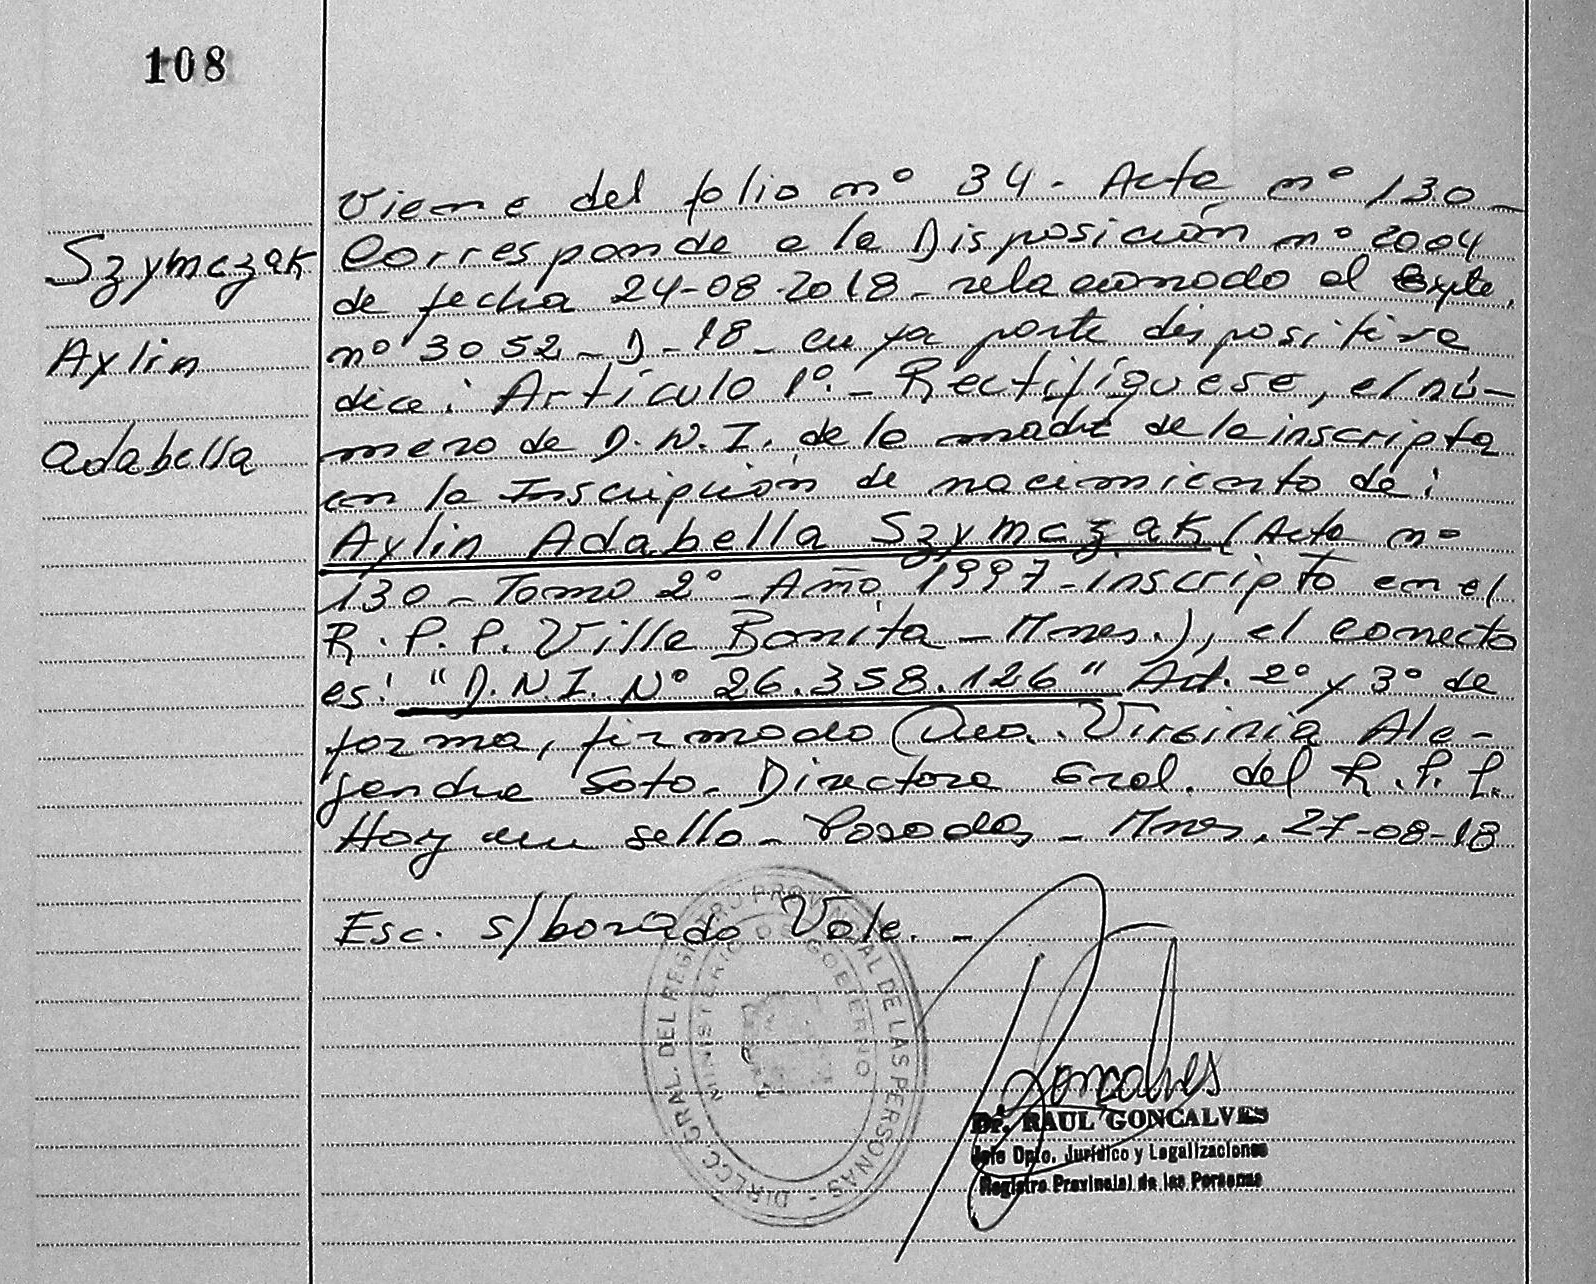 108
Szymczak
Aylin
Adabella
Viene del folio nº 34. Acta nº 130_
Corresponde a la Disposición nº 2004
de fecha 24-08-2018_ relacionado al Expte.
nº 3052_D_18_ cuya parte dispositiva
dice: Artículo 1º._ Rectifíquese, el nú-
mero de D.N.I. de la madre de la inscripta
en la Inscripción de nacimiento de:
Aylin Adabella Szymczak (Acta nº
130_Tomo 2º_Año 1997_inscripto en el
R.P.P. Villa Bonita_Mnes.), el correcto
es: "D.N.I. Nº 26.358.126" Art. 2º y 3º de
forma, firmado Dra. Virginia Ale-
jandra Soto_ Directora Gral. del R.P.P.
Hay un sello_ Posadas_Mnes. 27-08-18
Esc. s/borrado Vale._
DIRECC. GRAL. DEL REGISTRO PROVINCIAL DE LAS PERSONAS -
MINISTERIO DE GOBIERNO
Goncalves
Dr. RAUL GONCALVES
Jefe Dpto. Jurídico y Legalizaciones
Registro Provincial de las Personas